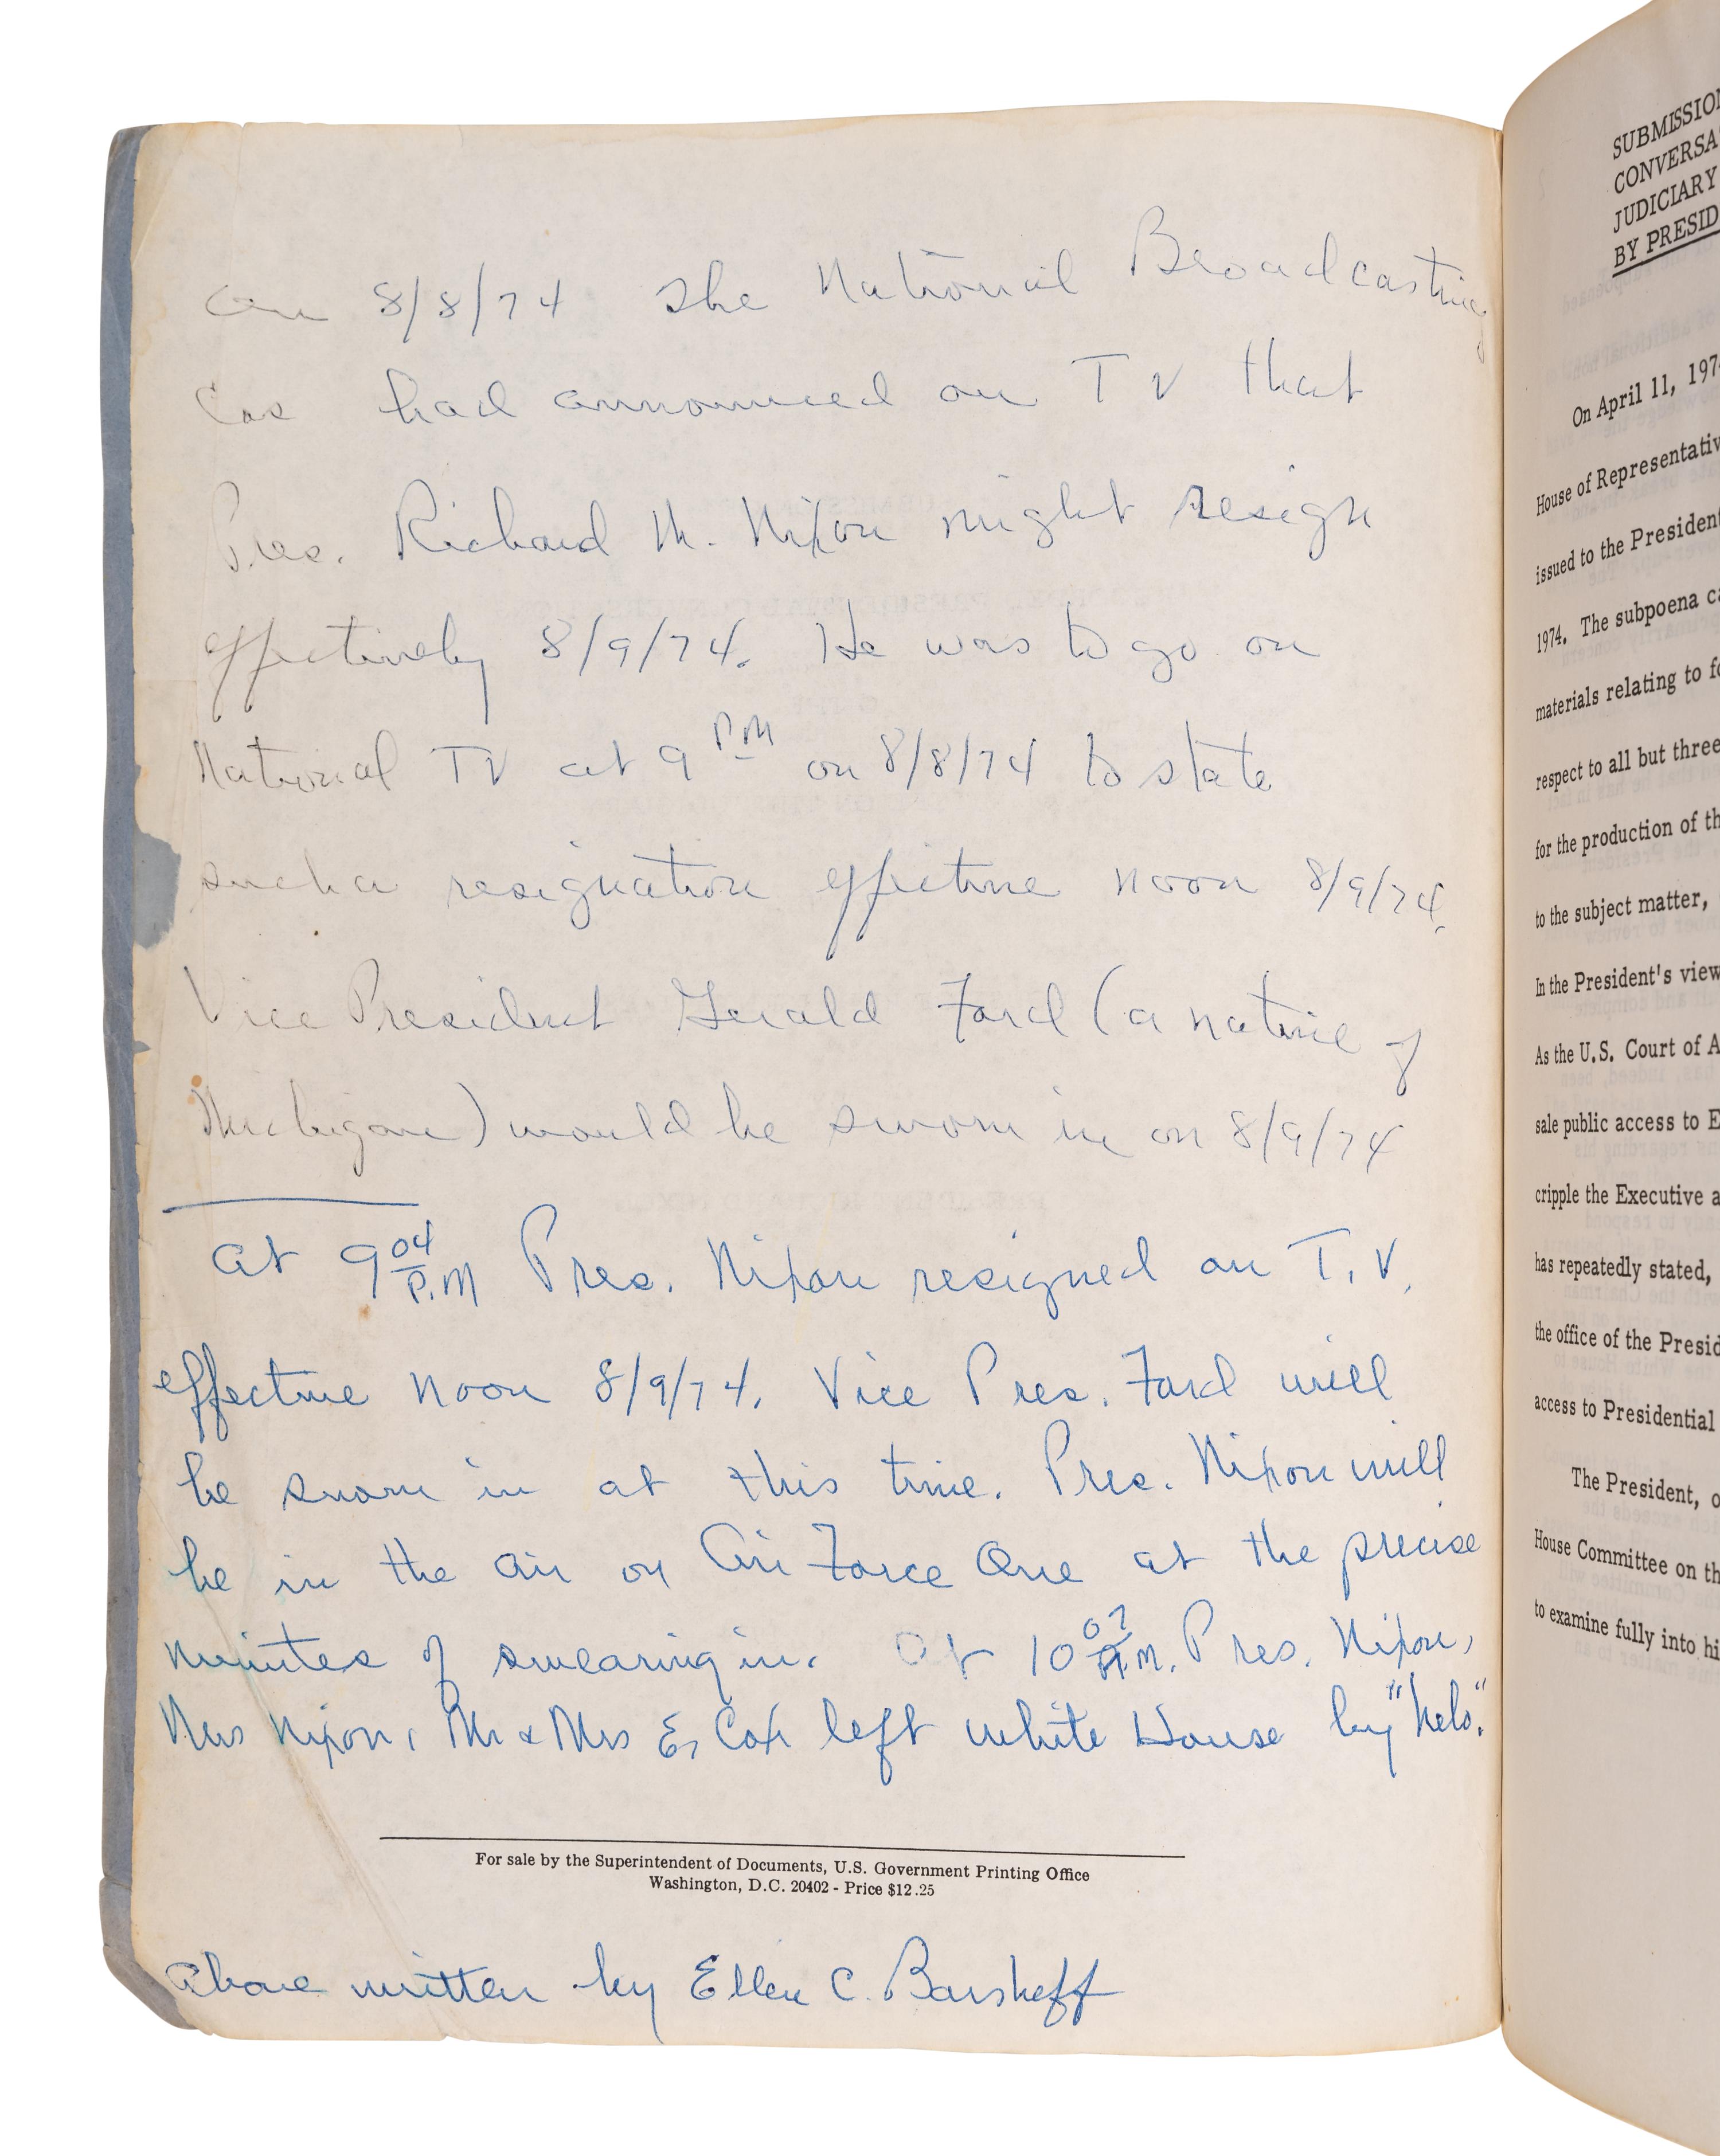 On 8/8/74 the National Broadcasting
Cos had announced on TV that
Pres. Richard M. Nixon might resign
effectively 8/9/74. He was to go on
National TV at 9 PM on 8/8/74 to state
such a resignation effective noon 8/9/74.
Vice President Gerald Ford (a native of
Michigan) would be sworn in on 8/9/74
At 9 04 P.M Pres. Nixon resigned on T.V.
effective noon 8/9/74. Vice Pres. Ford will
be sworn in at this time. Pres. Nixon will
be in the air on Air Force One at the precise
minutes of swearing in. At 10 07 A.M. Pres. Nixon,
Mrs Nixon, Mr & Mrs E, Cox left White House by "helo".
For sale by the Superintendent of Documents, U.S. Government Printing Office
Washington, D.C. 20402 - Price $12.25
Above written by Ellen C. Barsheff
SUBMISSION
CONVERSA
JUDICIARY
BY PRESID
On April 11, 197
House of Representativ
issued to the President
1974. The subpoena ca
materials relating to fo
respect to all but three
for the production of th
to the subject matter,
In the President's view
As the U.S. Court of A
sale public access to E
cripple the Executive a
has repeatedly stated,
the office of the Presid
access to Presidential
The President, o
House Committee on th
to examine fully into hi